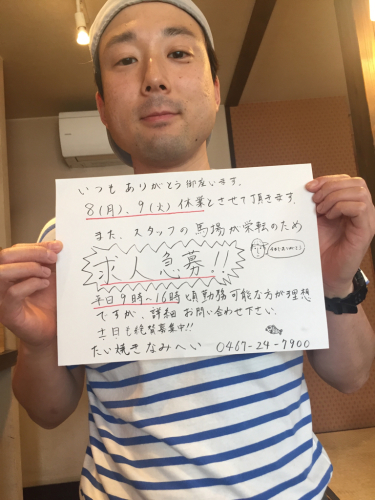 いつもありがとう御座います。
8(月)、9(火)休業とさせて頂きます。
また、スタッフの馬場が栄転のため
求人急募!!
平日9時〜16時頃勤務可能な方が理想
ですが、詳細お問い合わせ下さい。
土日も絶賛募集中!!
たい焼きなみへい 0467-24-7900